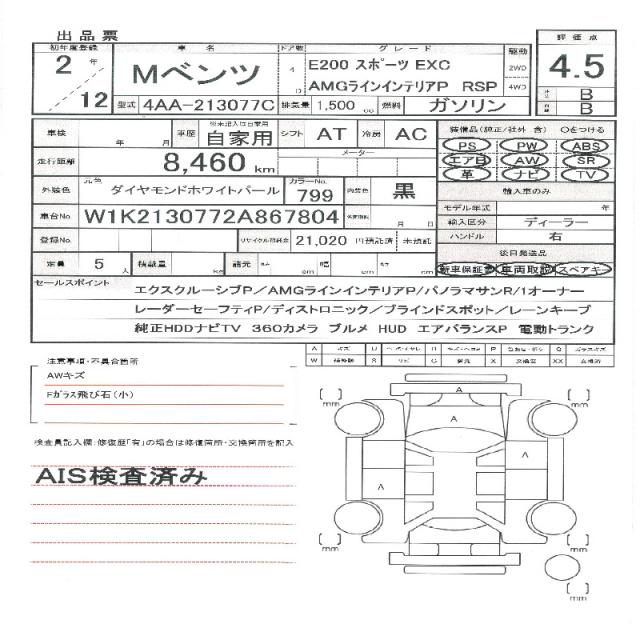 出品票
初年度登録 車名 ドア数 グレード 駆動 評価点
2年 / 12 Mベンツ 4 D E200 スポーツ EXC 2WD 4WD 4.5
AMGラインインテリアP RSP
B
B
型式 4AA-213077C 排気量 1,500 cc 燃料 ガソリン
車検 年 月 車歴 ※未記入は自家用 自家用 シフト AT 冷房 AC
装備品(純正/社外 含) ○をつける
PS PW ABS
エアB AW SR
革 ナビ TV
走行距離 8,460 km メーター
外装色 元色 ダイヤモンドホワイトパール カラーNo. 799 内装色 黒
輸入車のみ
モデル年式 年
輸入区分 ディーラー
ハンドル 右
車台No. W1K2130772A867804 月 日
登録No. リサイクル預託金 21,020 円預託済 未預託
後日発送品
新車保証書 車両取説 スペアキー
定員 5 人 積載量 Kg 諸元 長さ cm 幅 cm 高さ cm
セールスポイント
エクスクルーシブP/AMGラインインテリアP/パノラマサンR/1オーナー
レーダーセーフティP/ディストロニック/ブラインドスポット/レーンキープ
純正HDDナビTV 360カメラ ブルメ HUD エアバランスP 電動トランク
A キズ U P Q
W S サビ G X XX
注意事項・不具合箇所
AWキズ
Fガラス飛び石(小)
検査員記入欄:修復歴「有」の場合は修復箇所・交換箇所を記入
AIS検査済み
A
A
A
A
mm
mm
mm
mm
mm